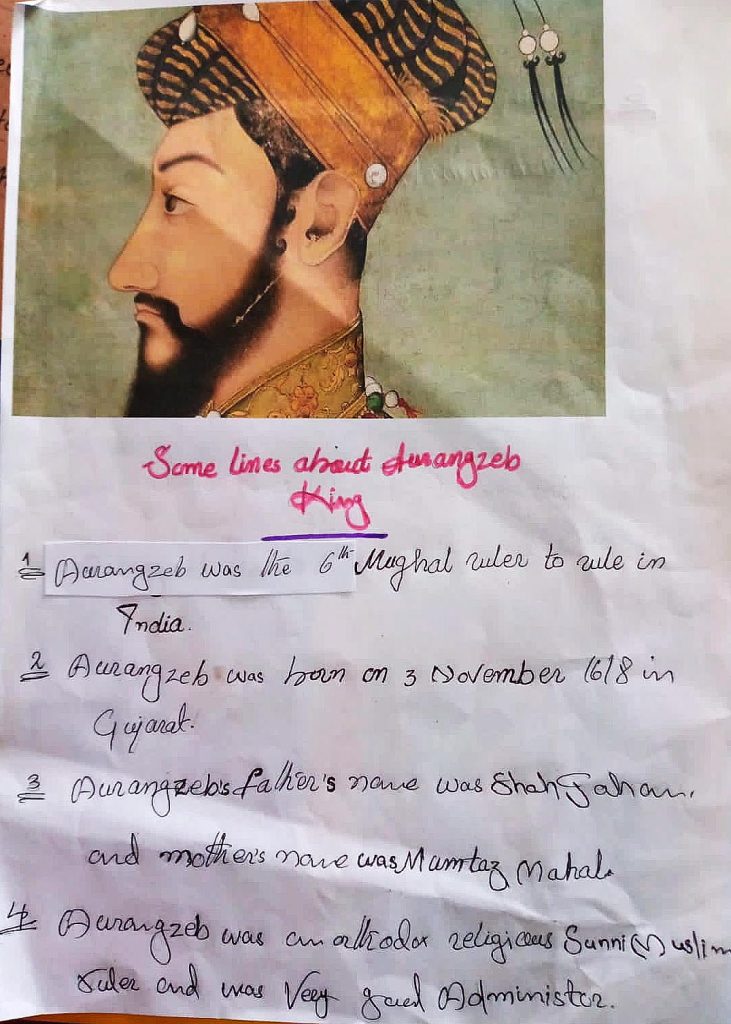 Some lines about Aurangzeb
King
1 Aurangzeb was the 6th Mughal ruler to rule in
India.
2 Aurangzeb was born on 3 November 1618 in
Gujarat.
3 Aurangzeb's father's name was Shah Jahan,
and mother's name was Mumtaz Mahal.
4 Aurangzeb was an orthodox religious Sunni Muslim
ruler and was Very good Administor.